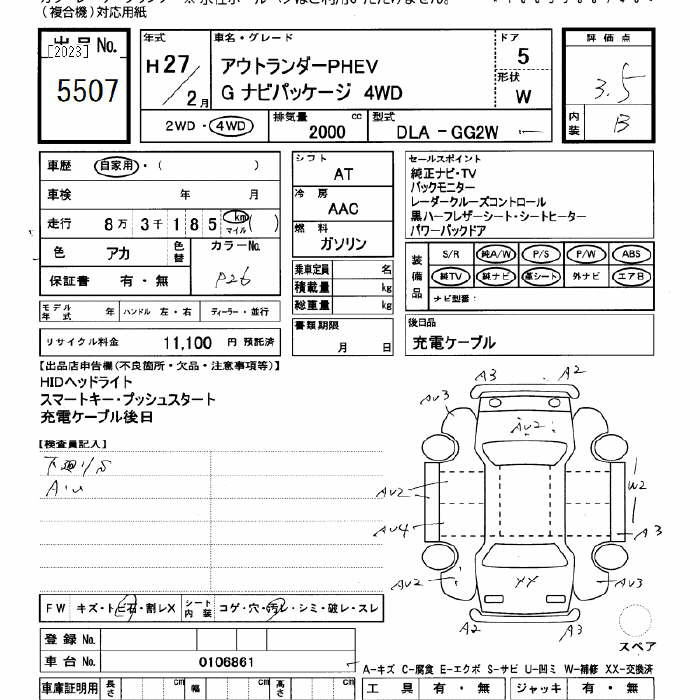 (複合機)対応用紙
出品No.
[2023]
5507
年式
H27/2月
車名・グレード
アウトランダーPHEV
G ナビパッケージ 4WD
ドア
5
形状
W
2WD・4WD
排気量 2000 cc
型式 DLA - GG2W
評価点
3.5
内装 B
車歴 自家用・( )
車検 年 月
走行 8万3千185 km マイル ( )
色 アカ 色替 カラーNo. P26
保証書 有・無
シフト AT
冷房 AAC
燃料 ガソリン
乗車定員 名
積載量 kg
総重量 kg
書類期限 月 日
セールスポイント
純正ナビ・TV
バックモニター
レーダークルーズコントロール
黒ハーフレザーシート・シートヒーター
パワーバックドア
装備品
S/R 純A/W P/S P/W ABS
純TV 純ナビ 革シート 外ナビ エアB
ナビ型番:
モデル年式 年 ハンドル 左・右 ディーラー・並行
リサイクル料金 11,100 円 預託済
後日品
充電ケーブル
【出品店申告欄(不良箇所・欠品・注意事項等)】
HIDヘッドライト
スマートキー・プッシュスタート
充電ケーブル後日
【検査員記入】
A3 A2
AU3
AU2
AU2 W2
AU4 A3
AU2 XX AU3
A2 A3
スペア
FW キズ・トビ石・割レX シート内装 コゲ・穴・汚レ・シミ・破レ・スレ
登録No.
車台No. 0106861
A-キズ C-腐食 E-エクボ S-サビ U-凹ミ W-補修 XX-交換済
車庫証明用 長さ cm 幅 cm 高さ cm
工具 有・無 ジャッキ 有・無